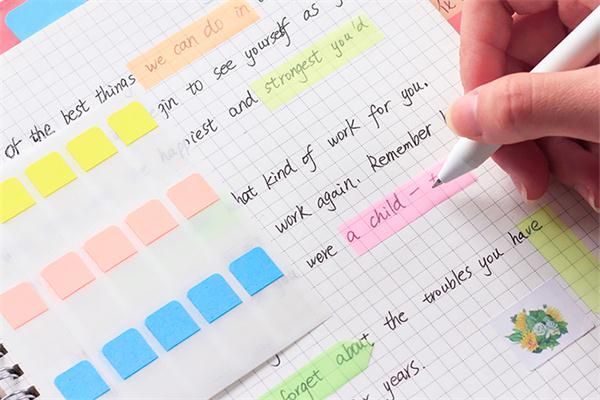 of the best things we can do in
gin to see yourself as y
ppiest and strongest you'd
hat kind of work for you.
work again. Remember
were a child - t
the troubles you have
forget about
years.